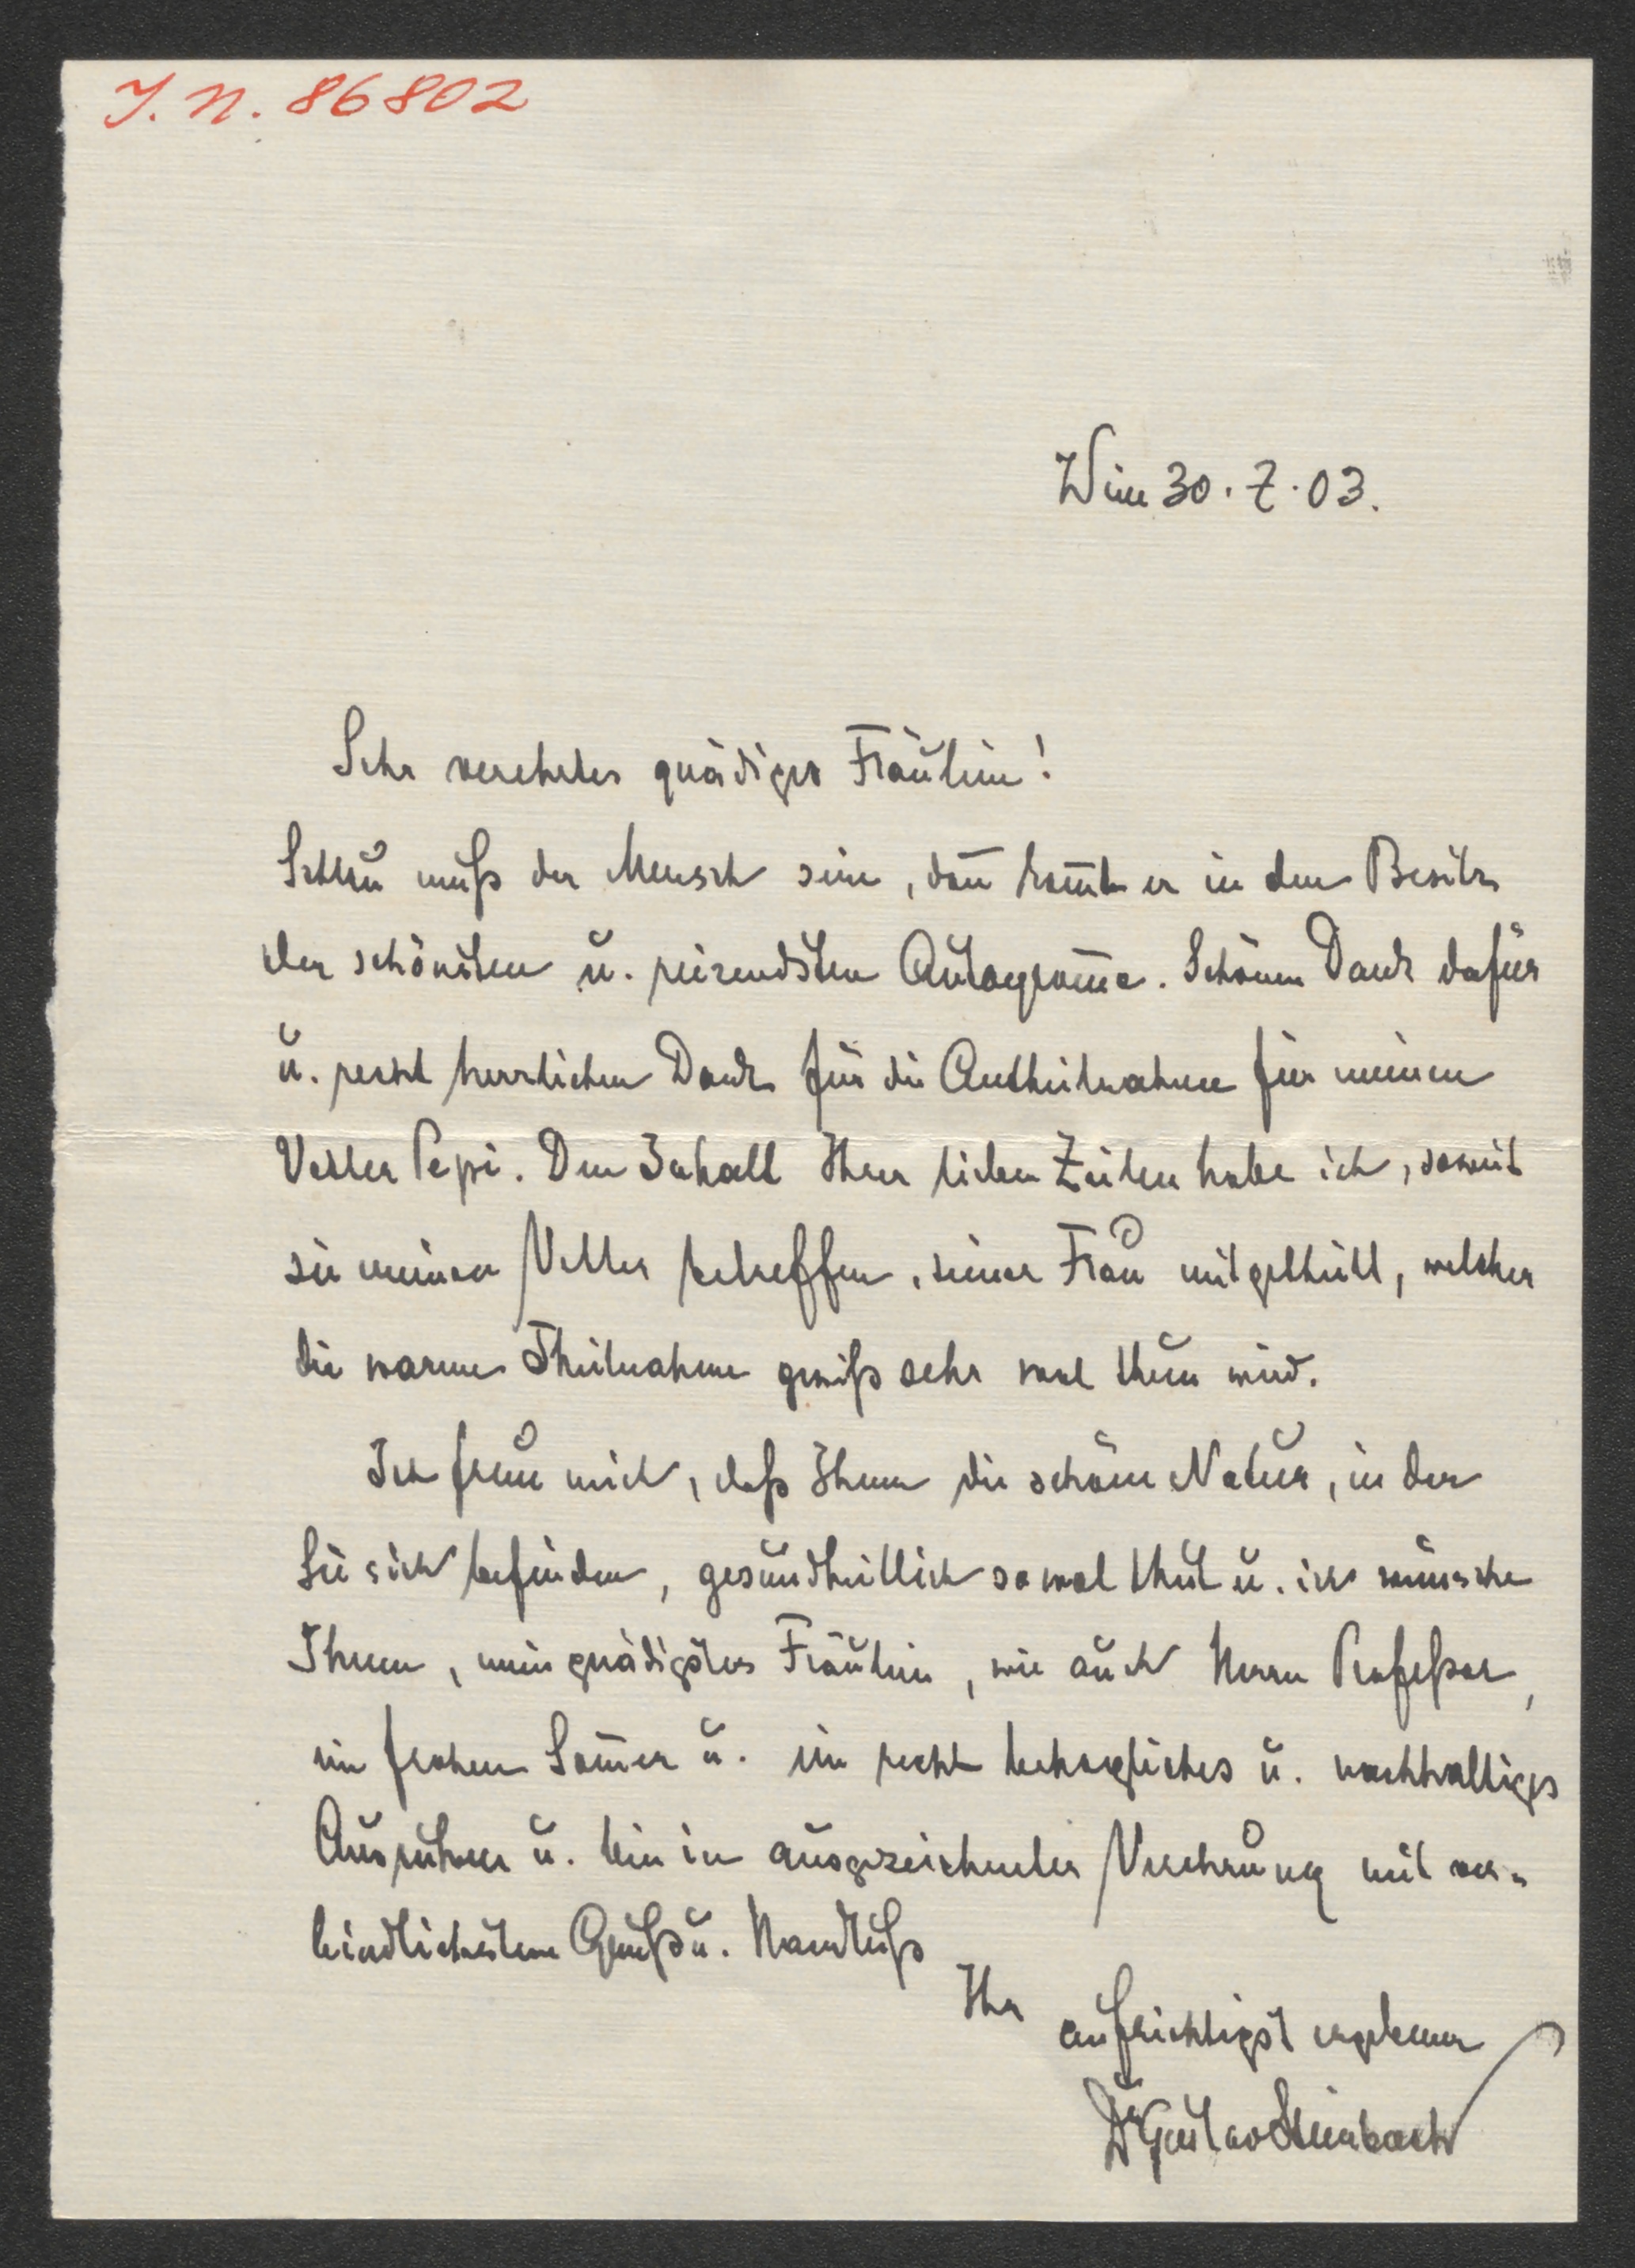 I. N. 86802
Wien 30. 7. 03.
Sehr verehrtes gnädiges Fräulein!
Schlau muß der Mensch sein, dan̄ kom̄t er in den Besitz
der schönsten u. reizendsten Autogram̄e. Schönen Dank dafür
u. recht herzlichen Dank für die Antheilnahme für meinen
Vetter Pepi. Den Inhalt Ihrer lieben Zeilen habe ich, soweit
sie meinen Vetter betreffen, seiner Frau mitgetheilt, welcher
die warme Theilnahme gewiß sehr wol thun wird.
Ich freue mich, daß Ihnen die schöne Natur, in der
Sie sich befinden, gesundheitlich so wol thut u. ich wünsche
Ihnen, mein gnädigstes Fräulein, wie auch Herrn Profeßor,
ein frohen Som̄er u. ein recht behagliches u. nachhaltiges
Ausruhen u. bin in ausgezeichneter Verehrung mit ver-
bindlichstem Gruß u. Handkuß
Ihr
aufrichtigst ergebener
Dr Gustav Steinbach